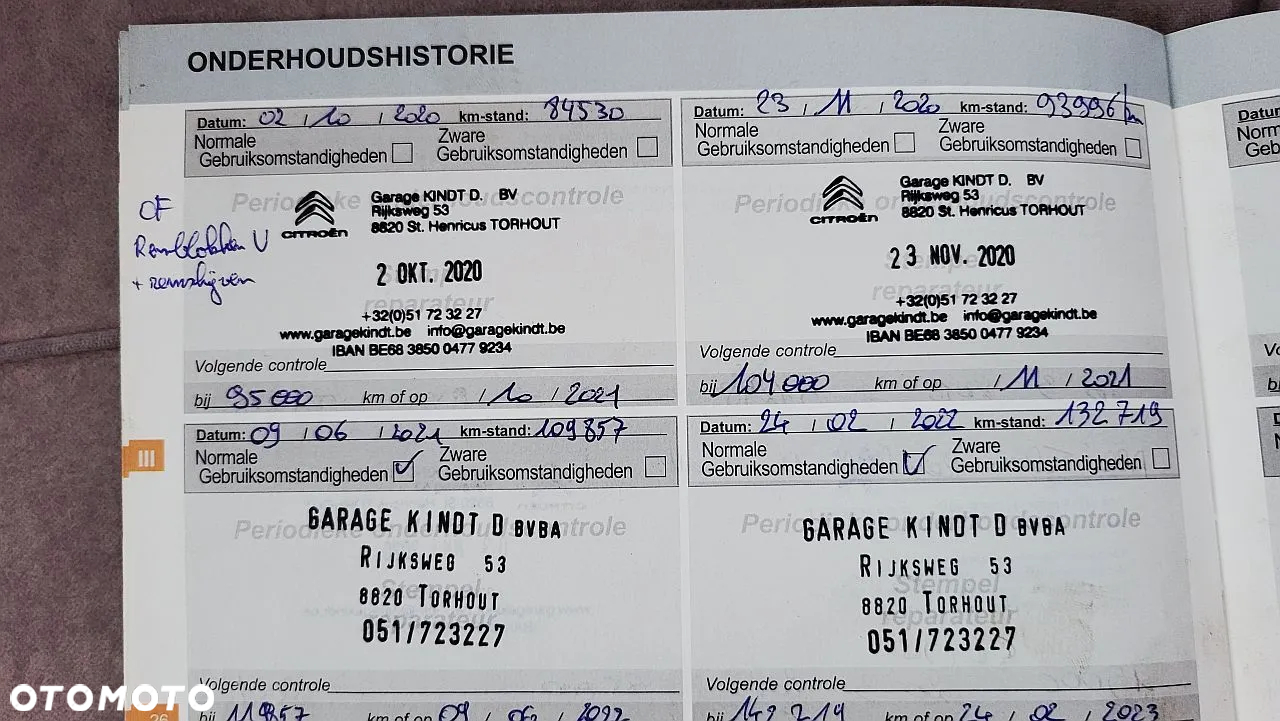 ONDERHOUDSHISTORIE
Datum: 02 / 10 / 2020 km-stand: 84530
Normale Gebruiksomstandigheden
Zware Gebruiksomstandigheden
Periodieke onderhoudscontrole
CITROËN
Garage KINDT D. BV
Rijksweg 53
8820 St. Henricus TORHOUT
2 OKT. 2020
Stempel
reparateur
+32(0)51 72 32 27
www.garagekindt.be info@garagekindt.be
IBAN BE68 3850 0477 9234
Volgende controle
bij 95000 km of op / 10 / 2021
OF
Remblokken V
+ remschijven
Datum: 23 / 11 / 2020 km-stand: 93996 km
Normale Gebruiksomstandigheden
Zware Gebruiksomstandigheden
Periodieke onderhoudscontrole
CITROËN
Garage KINDT D. BV
Rijksweg 53
8820 St. Henricus TORHOUT
23 NOV. 2020
Stempel
reparateur
+32(0)51 72 32 27
www.garagekindt.be info@garagekindt.be
IBAN BE68 3850 0477 9234
Volgende controle
bij 104000 km of op / 11 / 2021
III
Datum: 09 / 06 / 2021 km-stand: 109857
Normale Gebruiksomstandigheden
Zware Gebruiksomstandigheden
Periodieke onderhoudscontrole
GARAGE KINDT D BVBA
RIJKSWEG 53
8820 TORHOUT
051/723227
Stempel
reparateur
Volgende controle
bij 119857 km of op 09 / 06 / 2022
Datum: 24 / 02 / 2022 km-stand: 132719
Normale Gebruiksomstandigheden
Zware Gebruiksomstandigheden
Periodieke onderhoudscontrole
GARAGE KINDT D BVBA
RIJKSWEG 53
8820 TORHOUT
051/723227
Stempel
reparateur
Volgende controle
bij 142719 km of op 24 / 02 / 2023
26
OTOMOTO